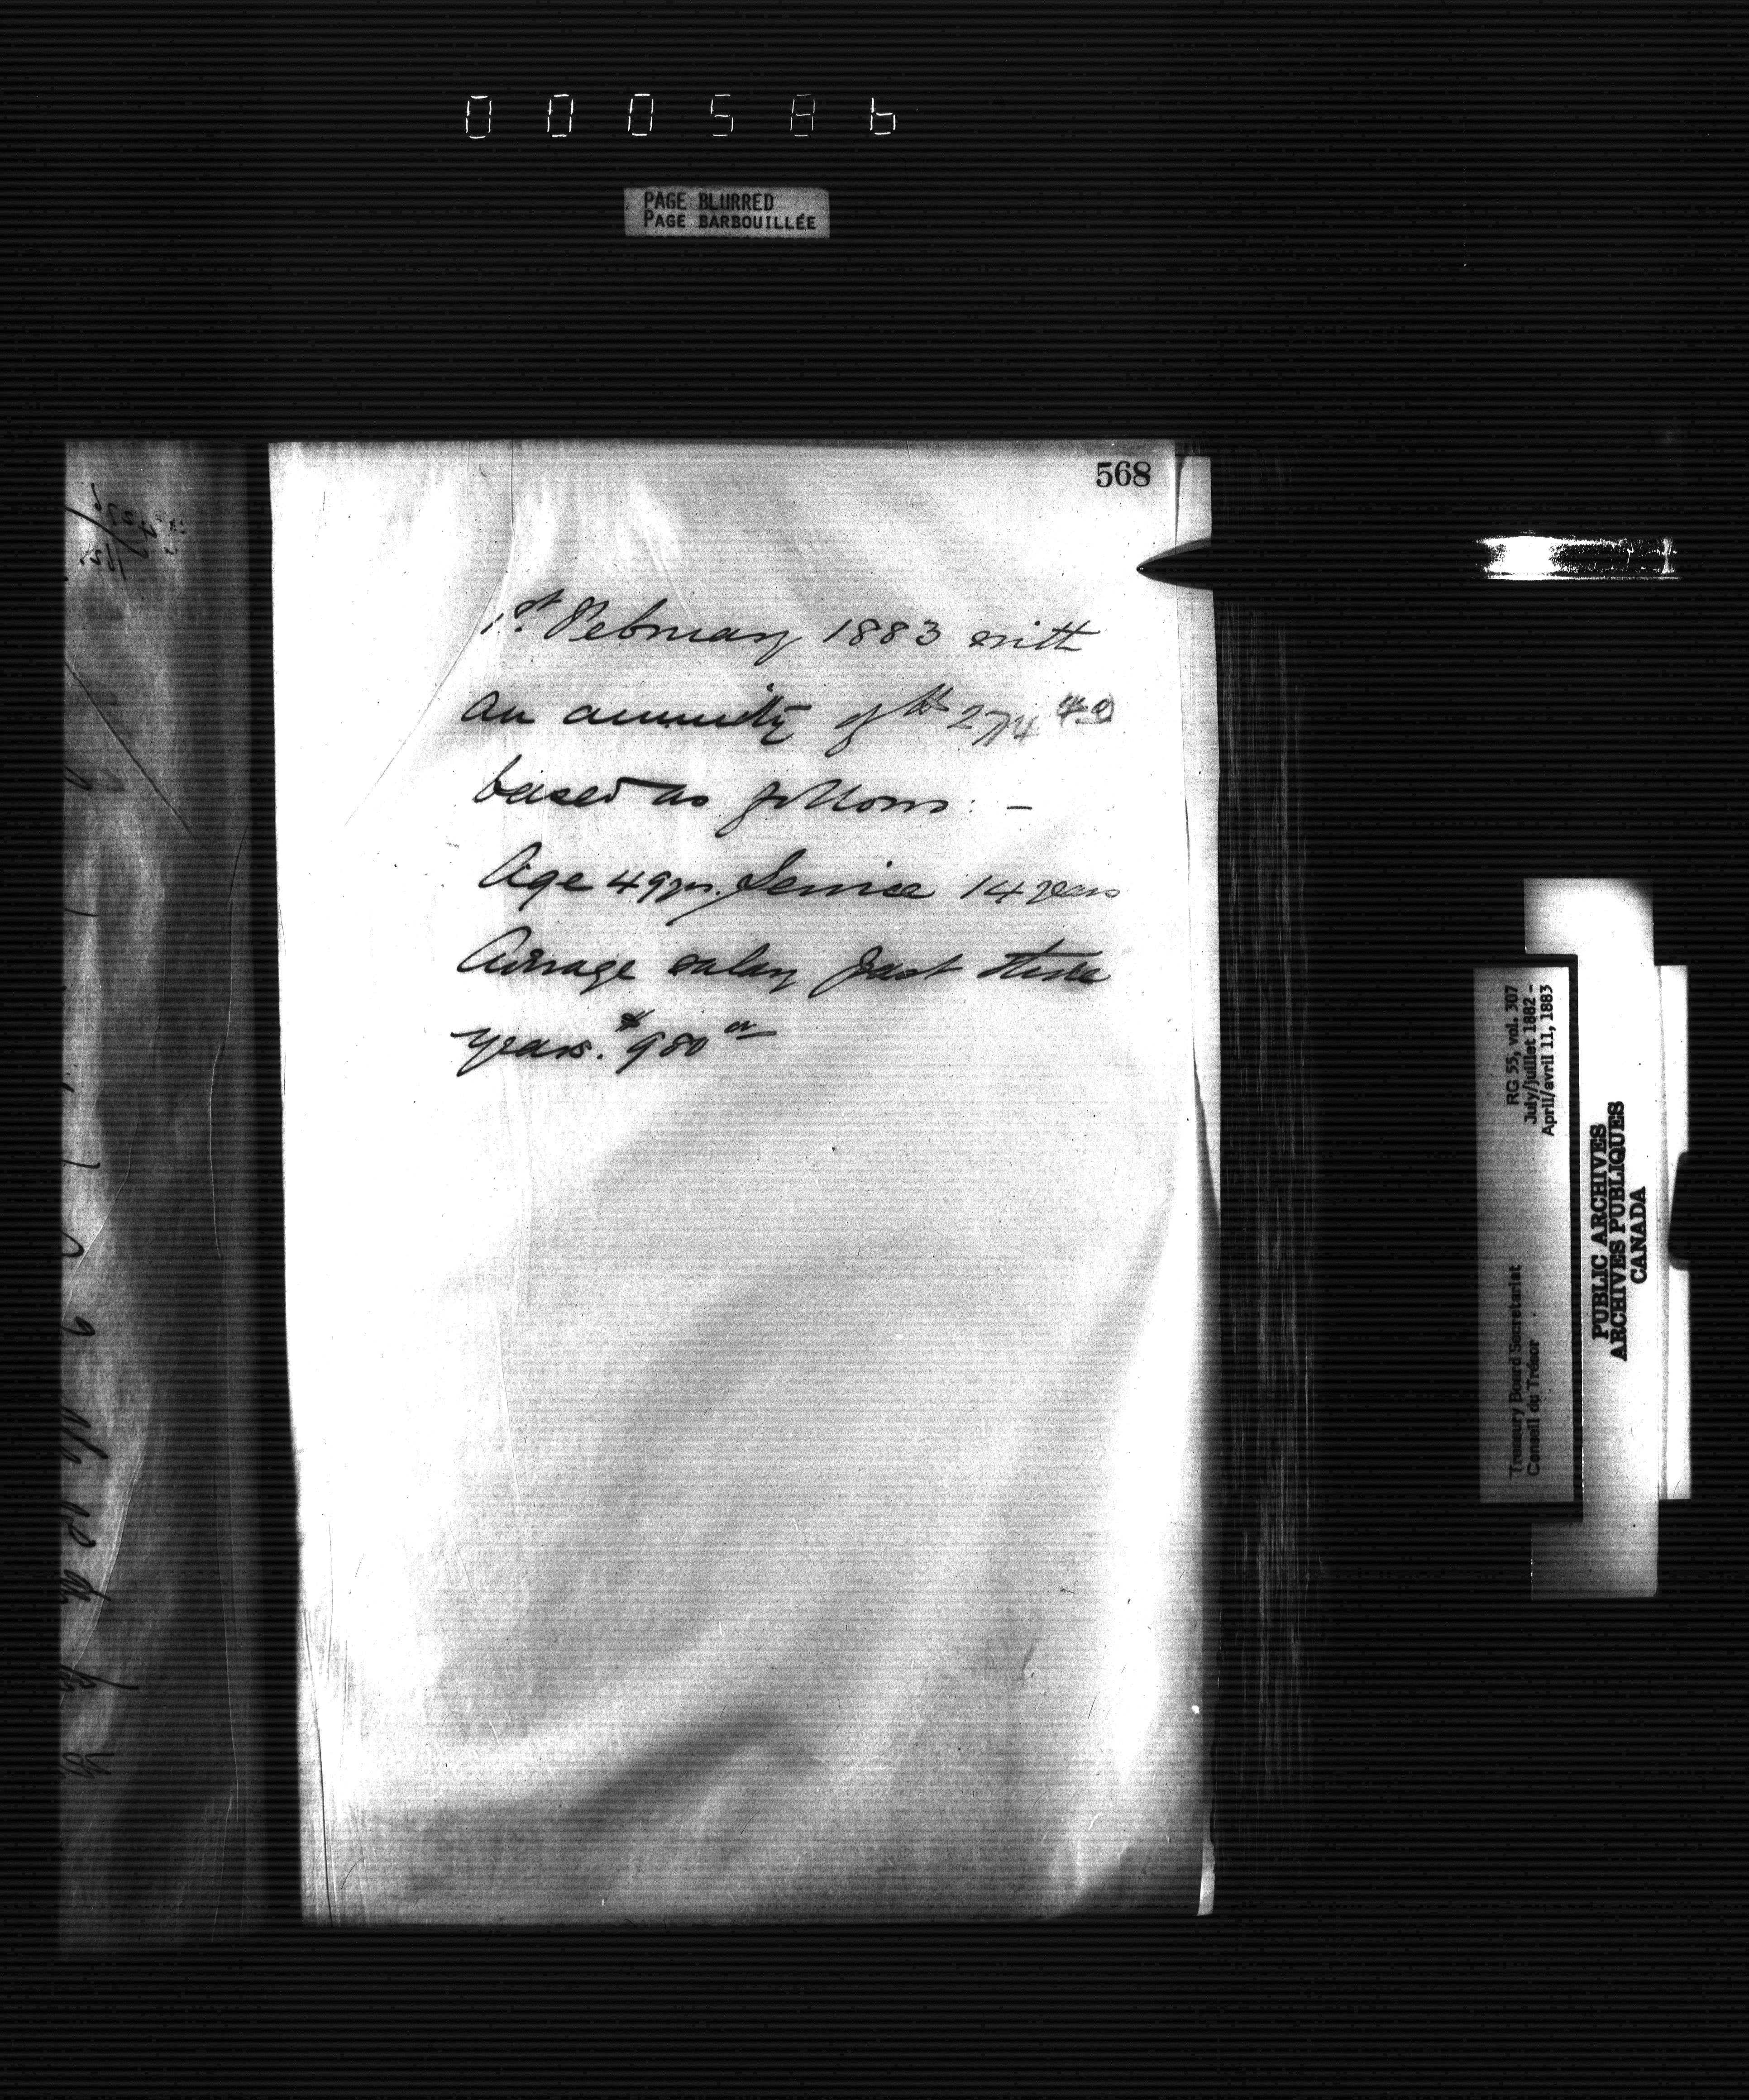 000586
PAGE BLURRED
PAGE BARBOUILLÉE
568
1st. February 1883 with
an annuity of $ 274 40
based as follows: -
Age 49 yrs. Service 14 years
Average salary past three
years. $980 00
RG 55, vol. 307
July/juillet 1882 -
April/avril 11, 1883
Treasury Board Secretariat
Conseil du Trésor
PUBLIC ARCHIVES
ARCHIVES PUBLIQUES
CANADA